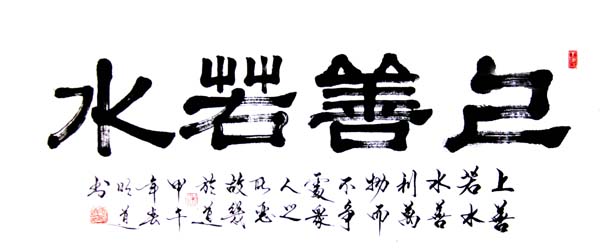 上善若水
上善
若水
水善
利萬
物而
不争
處衆
人之
所惡
故幾
於道
甲午
年
明道
书